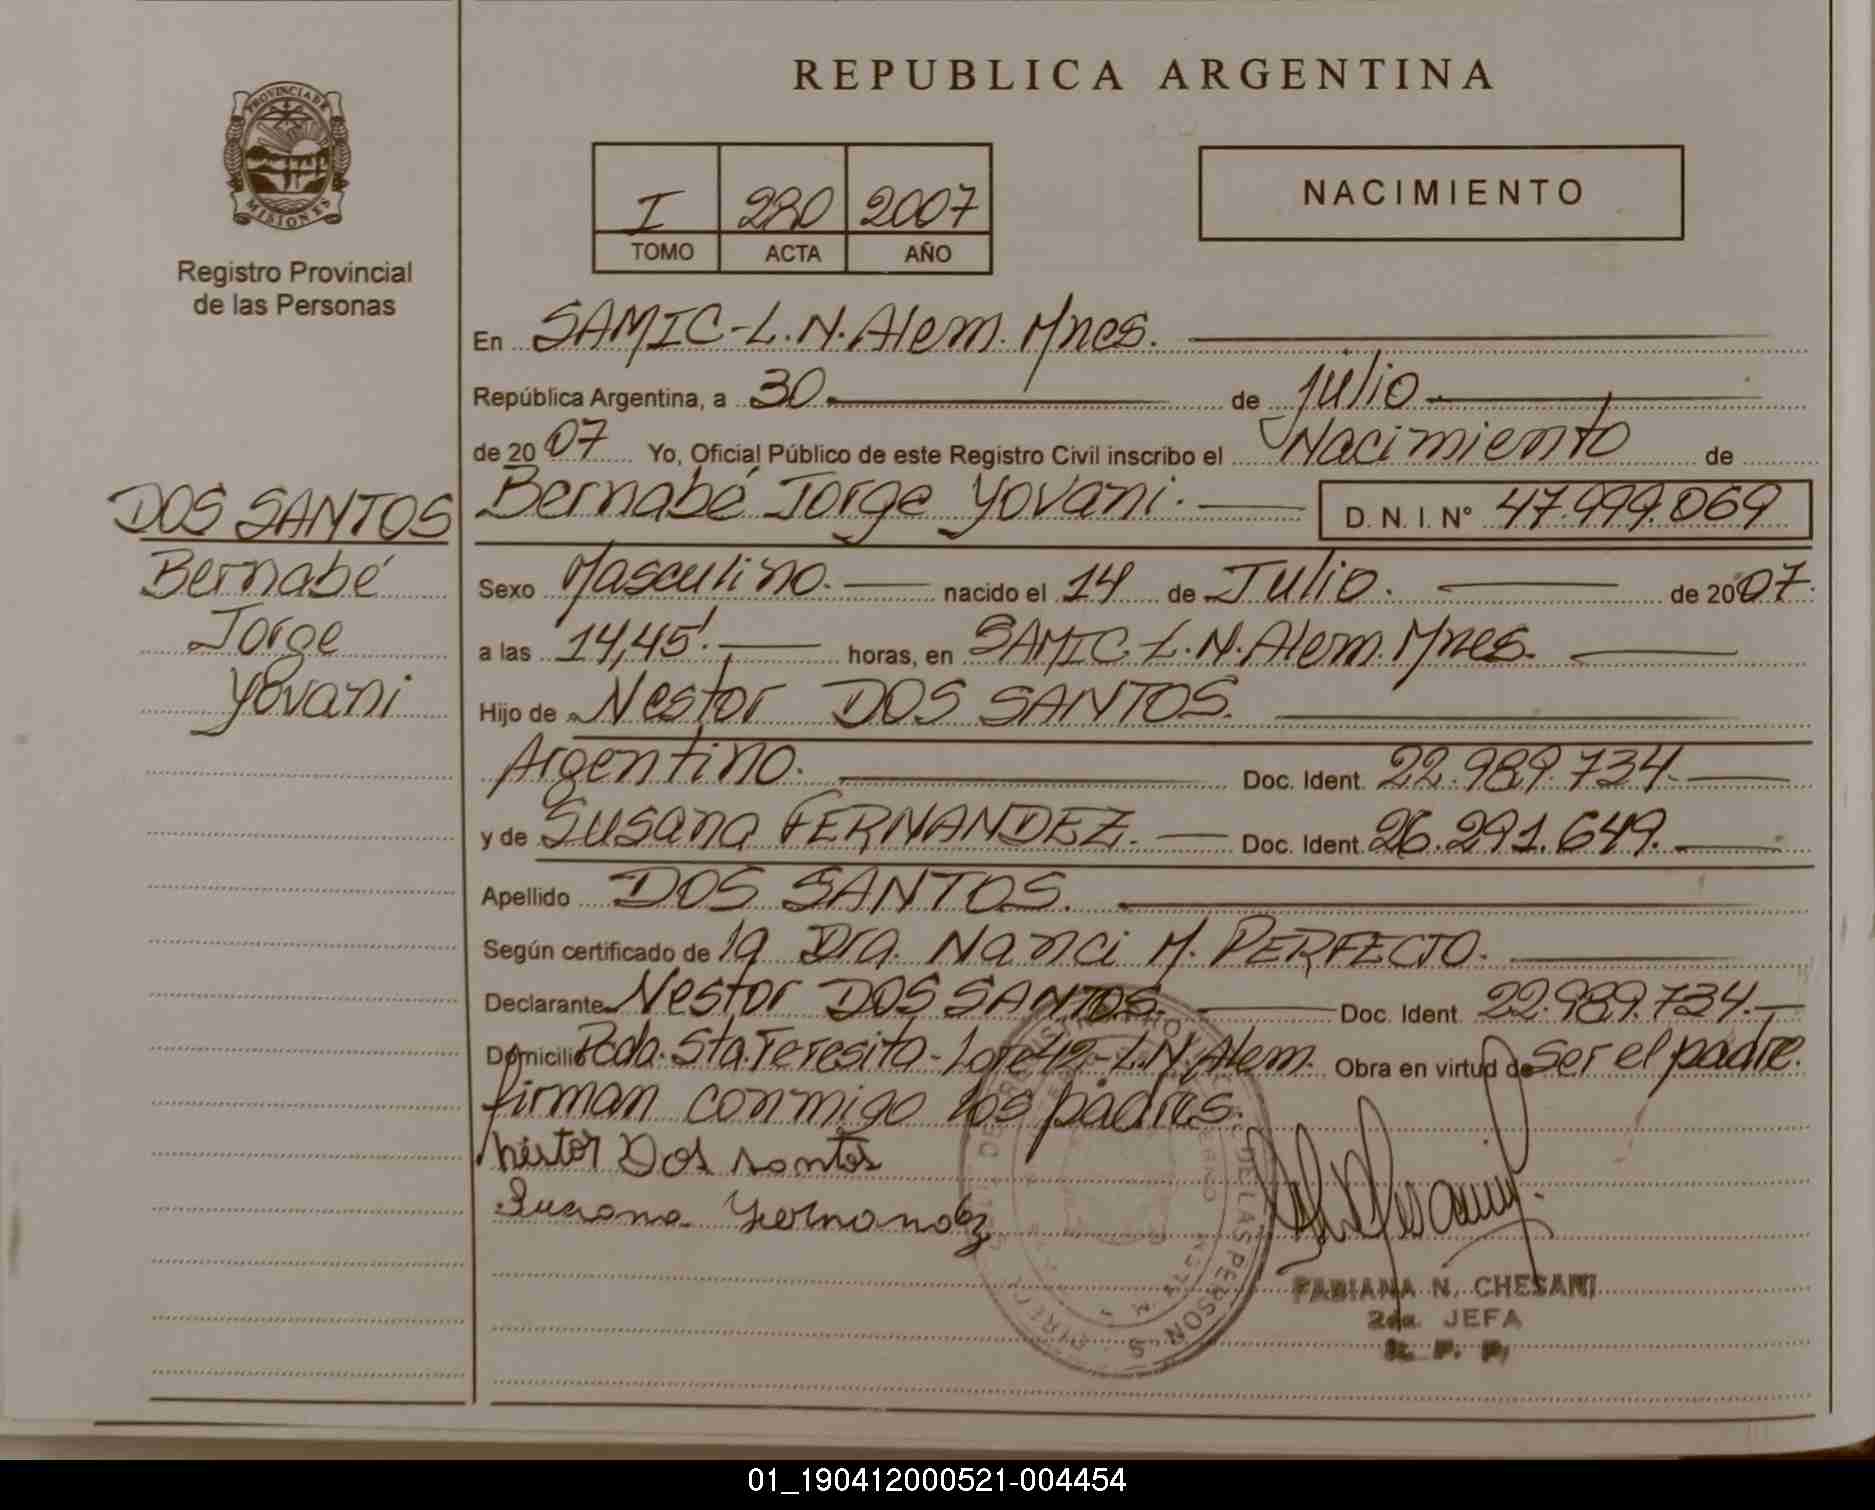 REPUBLICA ARGENTINA
PROVINCIA DE
MISIONES
Registro Provincial
de las Personas
I 280 2007
TOMO ACTA AÑO
NACIMIENTO
En SAMIC-L.N.Alem. Mnes.
República Argentina, a 30 de julio
de 2007 Yo, Oficial Público de este Registro Civil inscribo el Nacimiento de
Bernabé Jorge Yovani. D. N. I. N° 47.999.069
DOS SANTOS
Bernabé
Jorge
Yovani
Sexo Masculino. nacido el 14 de Julio. de 2007.
a las 14,45'. horas, en SAMIC.L.N.Alem.Mnes.
Hijo de Nestor DOS SANTOS.
Argentino. Doc. Ident. 22.989.734.
y de Susana FERNANDEZ. Doc. Ident. 26.291.649.
Apellido DOS SANTOS.
Según certificado de la Dra. Nanci M. PERFECTO.
Declarante Nestor DOS SANTOS. Doc. Ident. 22.989.734.
Domicilio Pcda. Sta.Teresita-Lote 42-L.N.Alem. Obra en virtud de ser el padre.
firman conmigo los padres.
Néstor Dos santos
Susana Fernandez
DE LAS PERSON S
FABIANA N. CHESANI
2da. JEFA
R. P. P.
01_190412000521-004454